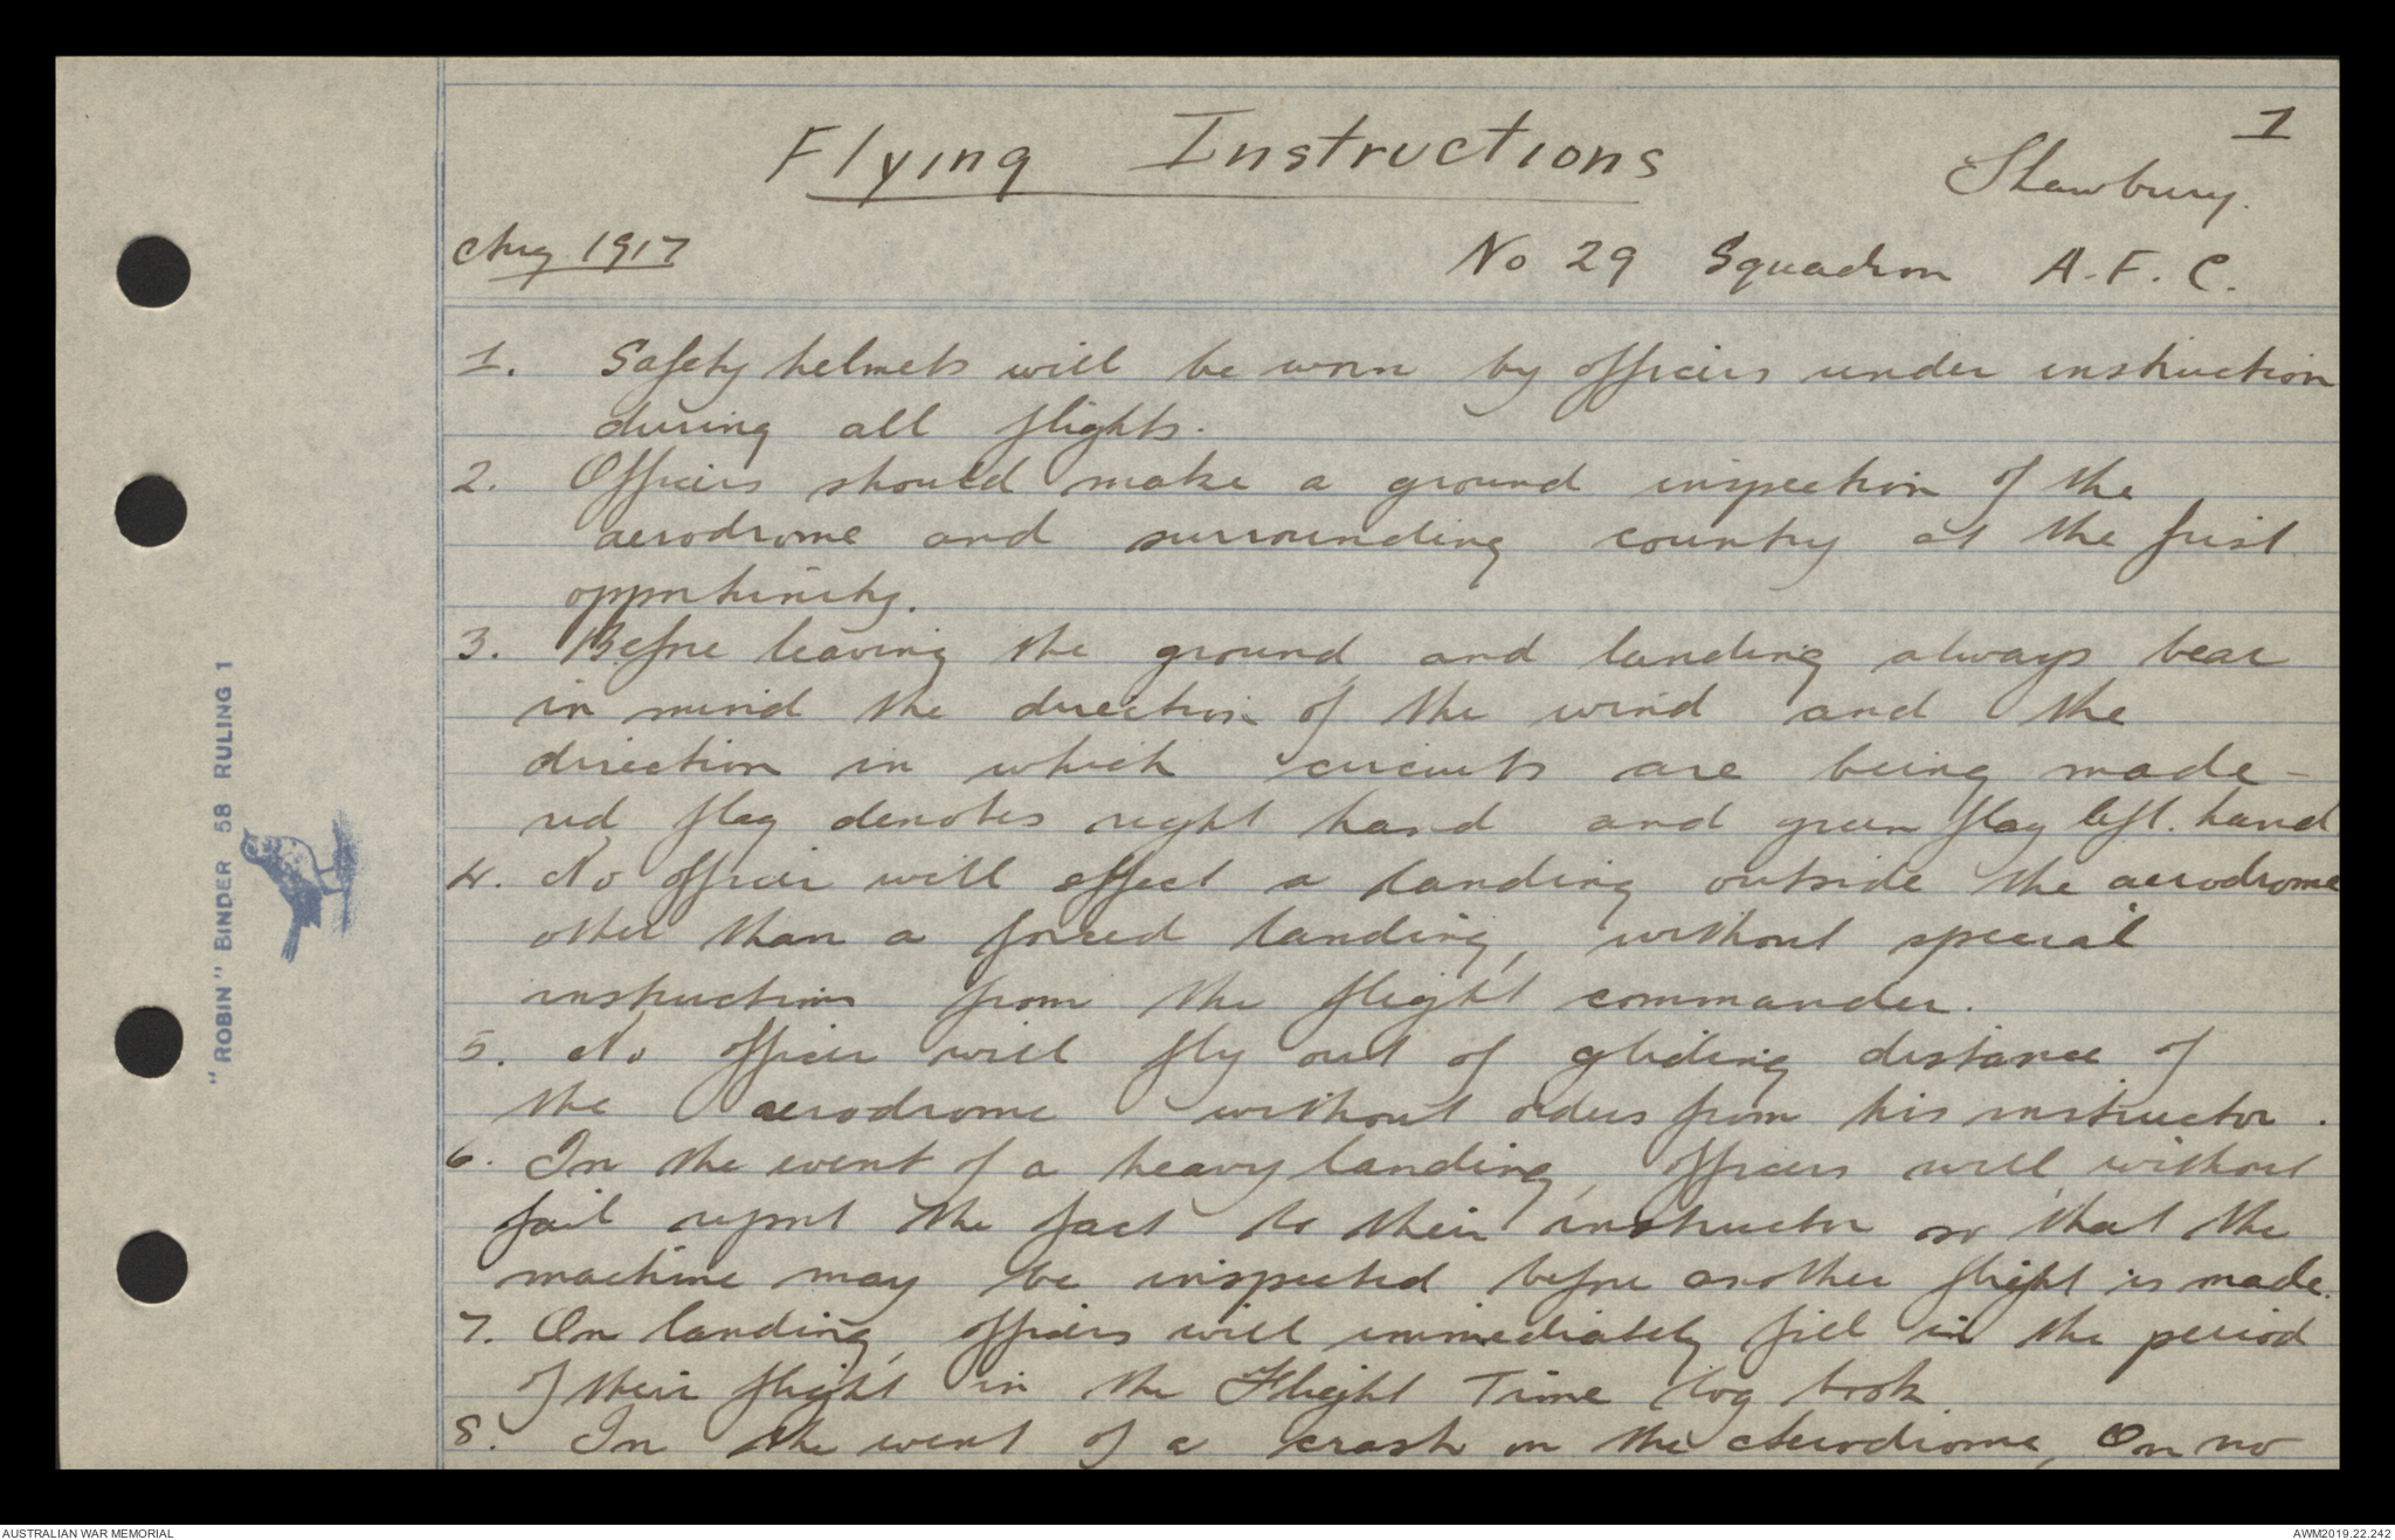 1
Flying Instructions
Shawbury.
Aug 1917
No 29 Squadron A.F.C.
1. Safety helmets will be worn by officers under instruction
during all flights.
2. Officers should make a ground inspection of the
aerodrome and surrounding country at the first
opportunity.
3. Before leaving the ground and landing always bear
in mind the direction of the wind and the
direction in which circuits are being made -
red flag denotes right hand and green flag left. hand
4. No officer will effect a landing outside the aerodrome
other than a forced landing, without special
instructions from the flight commander.
5. No officer will fly out of gliding distance of
the aerodrome without orders from his instructor.
6. In the event of a heavy landing, officers will, without
fail report the fact to their instructor so that the
machine may be inspected before another flight is made.
7. On landing, officers will immediately fill in the period
of their flight in the Flight Time log book.
8. In the event of a crash on the Aerodrome, On no
"ROBIN" BINDER 58 RULING 1
AUSTRALIAN WAR MEMORIAL
AWM2019.22.242